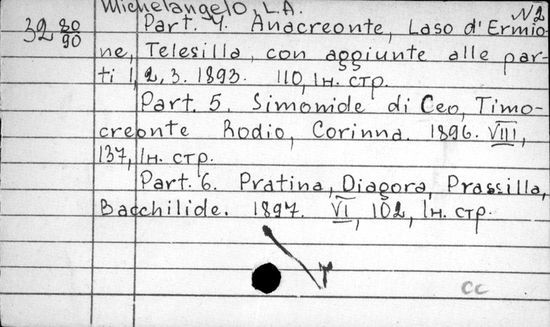 Michelangelo, L.A.
N2
32 80/90
Part. 4. Anacreonte, Laso d'Ermio-
ne, Telesilla, con aggiunte alle par-
ti 1, 2, 3. 1893. 110, 1н. стр.
Part. 5. Simonide di Ceo, Timo-
creonte Rodio, Corinna. 1896. VIII,
137, 1н. стр.
Part. 6. Pratina, Diagora, Prassilla,
Bacchilide. 1897. VI, 102, 1н. стр.
cc